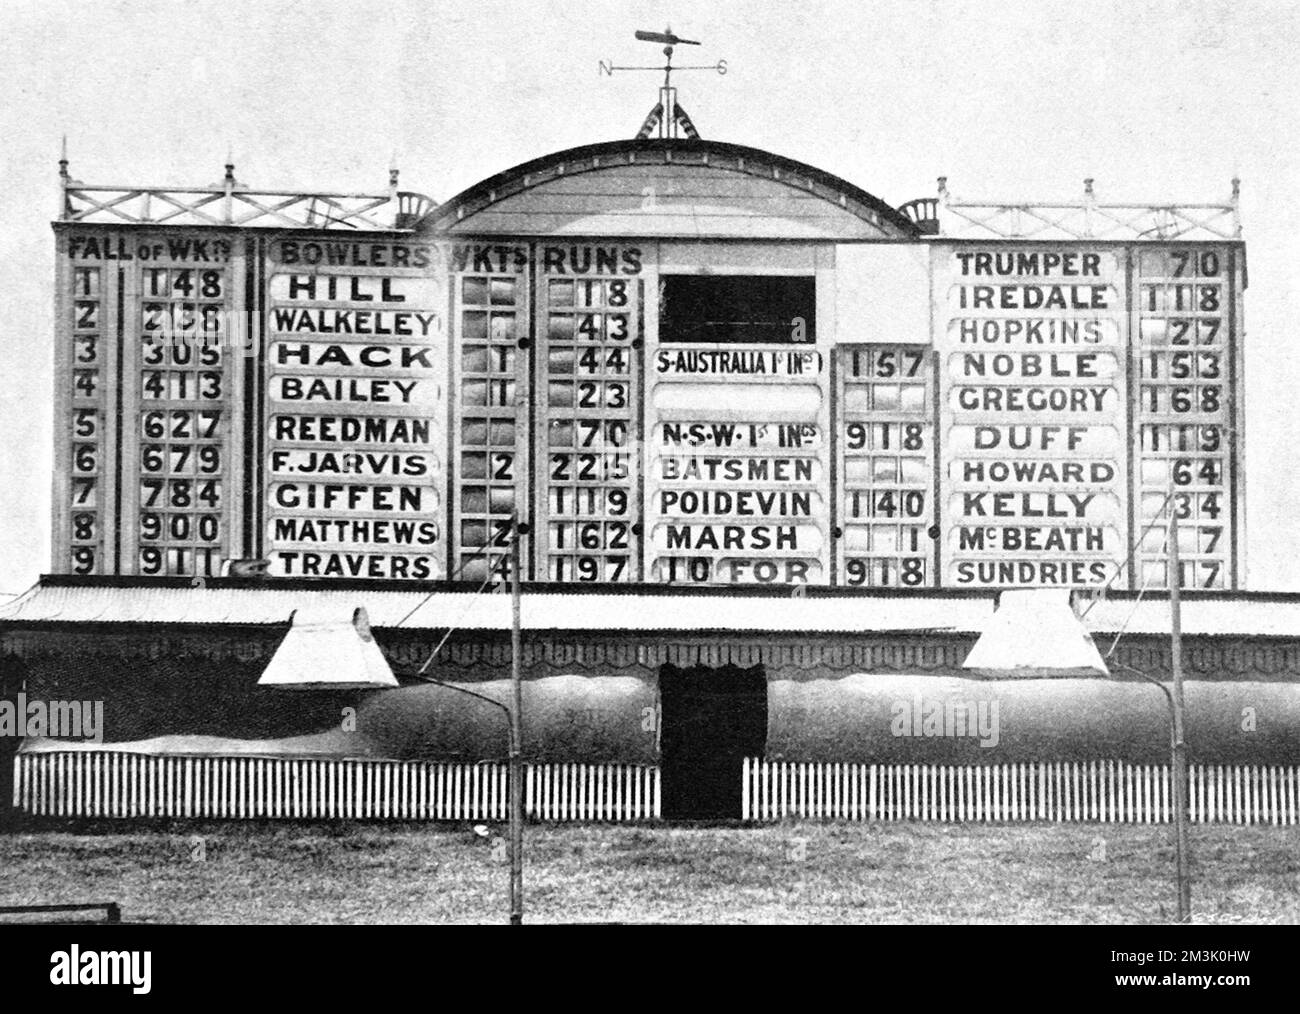 N S
FALL OF WKTS BOWLERS WKTS RUNS TRUMPER 70
1 148 HILL 18 IREDALE 118
2 238 WALKELEY 43 HOPKINS 27
3 305 HACK 1 44 S-AUSTRALIA 1ST INGS 157 NOBLE 153
4 413 BAILEY 1 23 GREGORY 168
5 627 REEDMAN 70 N.S.W. 1ST INGS 918 DUFF 119
6 679 F. JARVIS 2 225 BATSMEN HOWARD 64
7 784 GIFFEN 119 POIDEVIN 140 KELLY 34
8 900 MATTHEWS 2 162 MARSH 1 McBEATH 7
9 911 TRAVERS 4 197 10 FOR 918 SUNDRIES 17
alamy
a
a
a
a
a
alamy
Image ID: 2M3K0HW
www.alamy.com